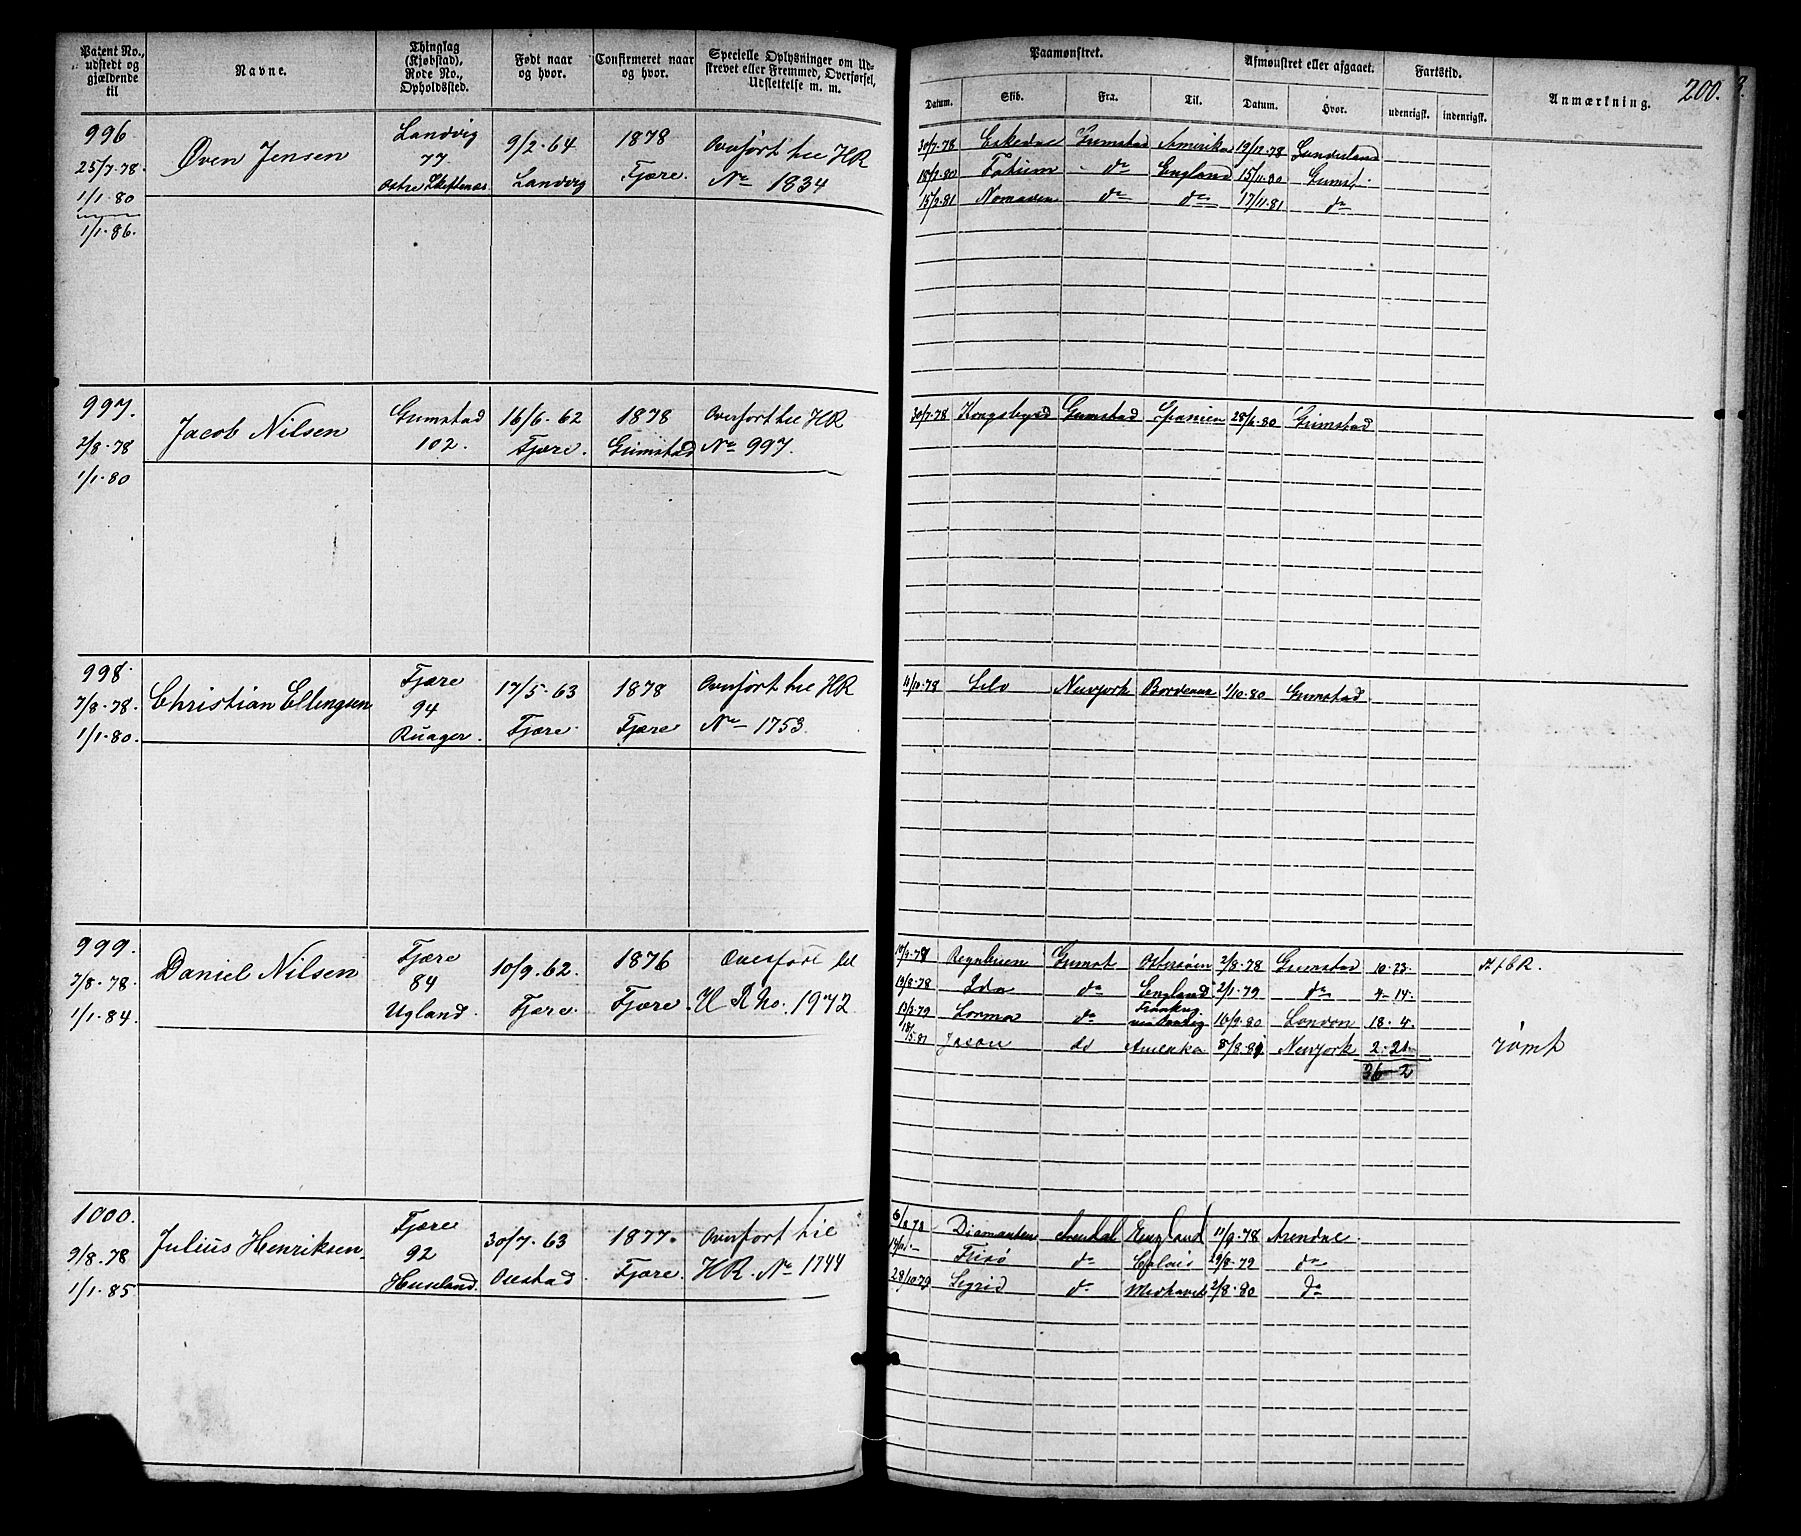 Patent No., udstedt og gjældende til
Navne.
Thinglag (Kjøbstad), Rode No., Opholdssted.
Født naar og hvor.
Confirmeret naar og hvor.
Specielle Oplysninger om Udstrevet eller Fremmed, Overførsel, Udslettelse m. m.
Paamønstret.
Datum. Skib. Fra. Til.
Afmønstret eller afgaaet.
Datum. Hvor.
Fartstid.
udenrigsk. indenrigsk.
Anmærkning.
200.
996
25/7-78
1/1-80
1/1-86.
Øven Jensen
Landvig
77
Østre
9/2-64
Landvig
1878
Fjære.
Overført til HR
No 1834
30/7-78 Grimstad Amerika 19/12-78 Sunderland
do England 15/11-80 Grimst.
15/2-81 do do 17/11-81 do
997.
2/8-78
1/1-80
Jacob Nilsen
Grimstad
102.
16/6-62
Fjære.
1878
Grimstad
Overført til HR
No 997.
30/7-78 Grimstad Spanien 28/6-80 Grimstad
998.
7/8-78
1/1-80.
Christian Ellingsen
Fjære
94
Ruager
17/5-63
Fjære
1878
Fjære
Overført til HR
No 1753
11/10-78 Newyork Bordeaux 7/10-80 Grimstad
999.
7/8-78.
1/1-84.
Daniel Nilsen
Fjære
84
Ugland.
10/9-62.
Fjære.
1876
Fjære
Overført til
H R No. 1972
Regnbuen Grimst Østersøen 2/8-78 Grimstad 10-23
19/8-78 Ida do England 2/1-79 do 4-14.
13/3-79 Lorma do London 18-4.
18/5-81 Jason do Amerika 8/8-81 Newyork 2-21
36-2
rømt
1000.
9/8-78
1/1-85
Julius Henriksen
Fjære
92
30/7-63
1877.
Fjære.
Overført til
HR. No 1744
Diamanten Arendal England 11/9-78 Arendal
Frisø do 19/8-79 do
28/10-79 Sigrid do 2/8-80 do